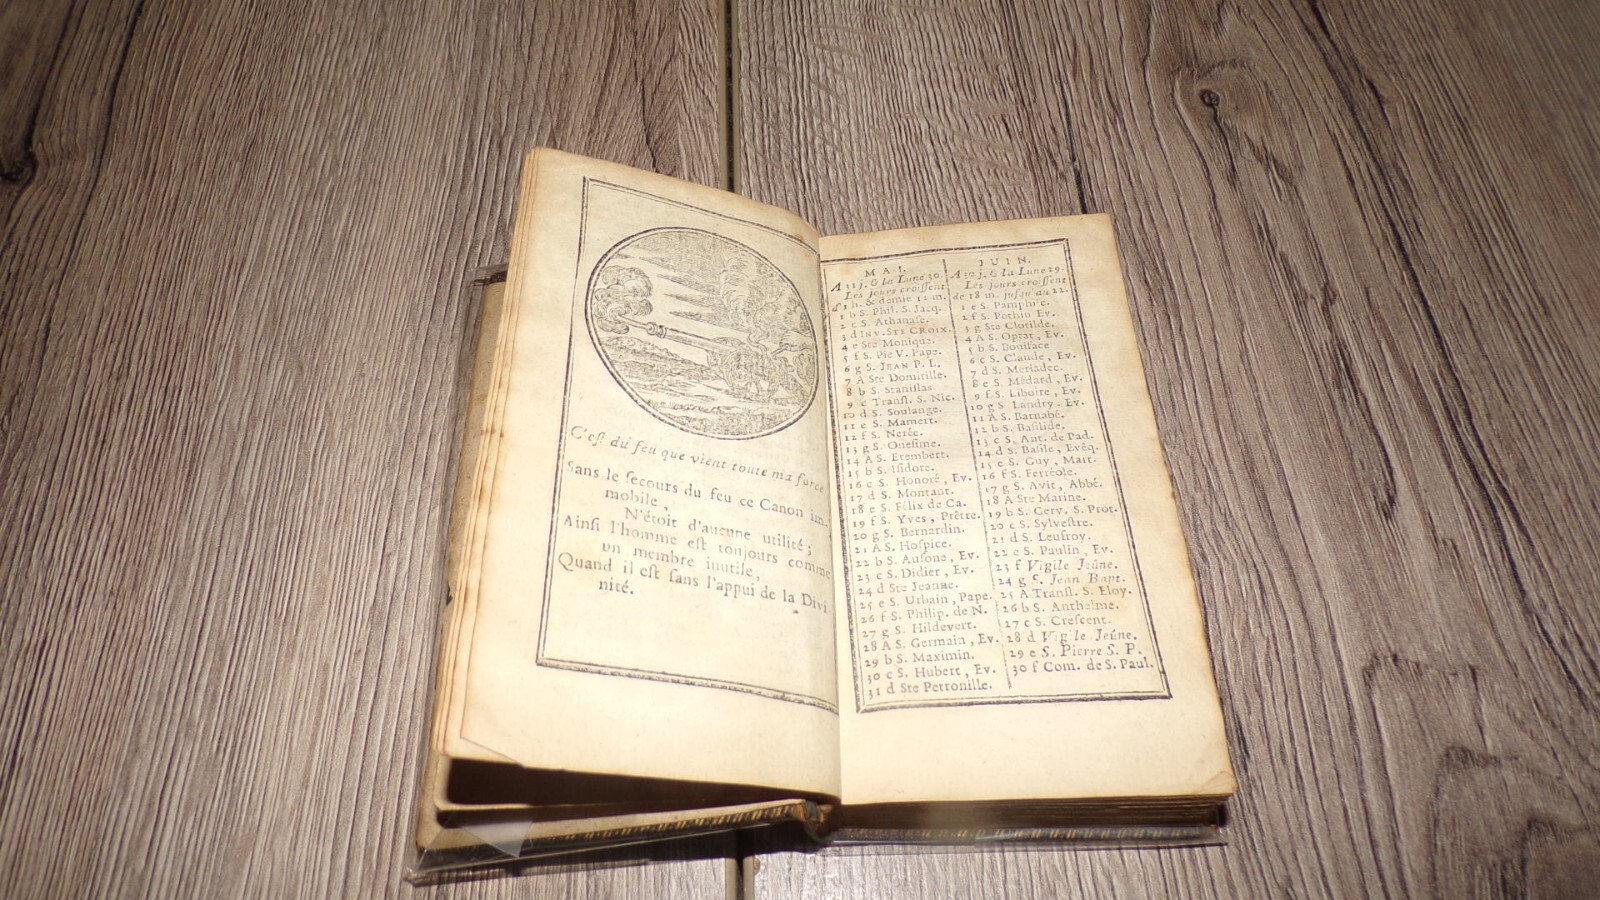 C'eſt du feu que vient toute ma force
Sans le ſecours du feu ce Canon im-
mobile,
N'étoit d'aucune utilité;
Ainſi l'homme eſt toujours comme
un membre inutile,
Quand il eſt ſans l'appui de la Divi-
nité.
MAI.
A 31 j. & la Lune 30.
Les jours croiſſent
d'1 h. & demie 12 m.
1 b S. Phil. S. Jacq.
2 c S. Athanaſe.
3 d INV. STE CROIX.
4 e Ste Monique.
5 f S. Pie V. Pape.
6 g S. JEAN P. L.
7 A Ste Domitille.
8 b S. Staniſlas.
9 c Tranſl. S. Nic.
10 d S. Soulange.
11 e S. Mamert.
12 f S. Nerée.
13 g S. Oneſime.
14 A S. Erembert.
15 b S. Iſidore.
16 c S. Honoré, Ev.
17 d S. Montant.
18 e S. Félix de Ca.
19 f S. Yves, Prêtre.
20 g S. Bernardin.
21 A S. Hoſpice.
22 b S. Auſone, Ev.
23 c S. Didier, Ev.
24 d Ste Jeanne.
25 e S. Urbain, Pape.
26 f S. Philip. de N.
27 g S. Hildevert.
28 A S. Germain, Ev.
29 b S. Maximin.
30 c S. Hubert, Ev.
31 d Ste Petronille.
JUIN.
A 30 j. & la Lune 29.
Les jours croiſſent
de 18 m. juſqu'au 22.
1 e S. Pamphile.
2 f S. Pothin Ev.
3 g Ste Clotilde.
4 A S. Optat, Ev.
5 b S. Boniface
6 c S. Claude, Ev.
7 d S. Mériadec.
8 e S. Médard, Ev.
9 f S. Liboire, Ev.
10 g S. Landry, Ev.
11 A S. Barnabé.
12 b S. Baſilide.
13 c S. Ant. de Pad.
14 d S. Baſile, Evêq.
15 e S. Guy, Mart.
16 f S. Ferréole.
17 g S. Avit, Abbé.
18 A Ste Marine.
19 b S. Gerv. S. Prot.
20 c S. Sylveſtre.
21 d S. Leufroy.
22 e S. Paulin, Ev.
23 f Vigile Jeûne.
24 g S. Jean Bapt.
25 A Tranſl. S. Eloy.
26 b S. Anthelme.
27 c S. Creſcent.
28 d Vigile Jeûne.
29 e S. Pierre S. P.
30 f Com. de S. Paul.